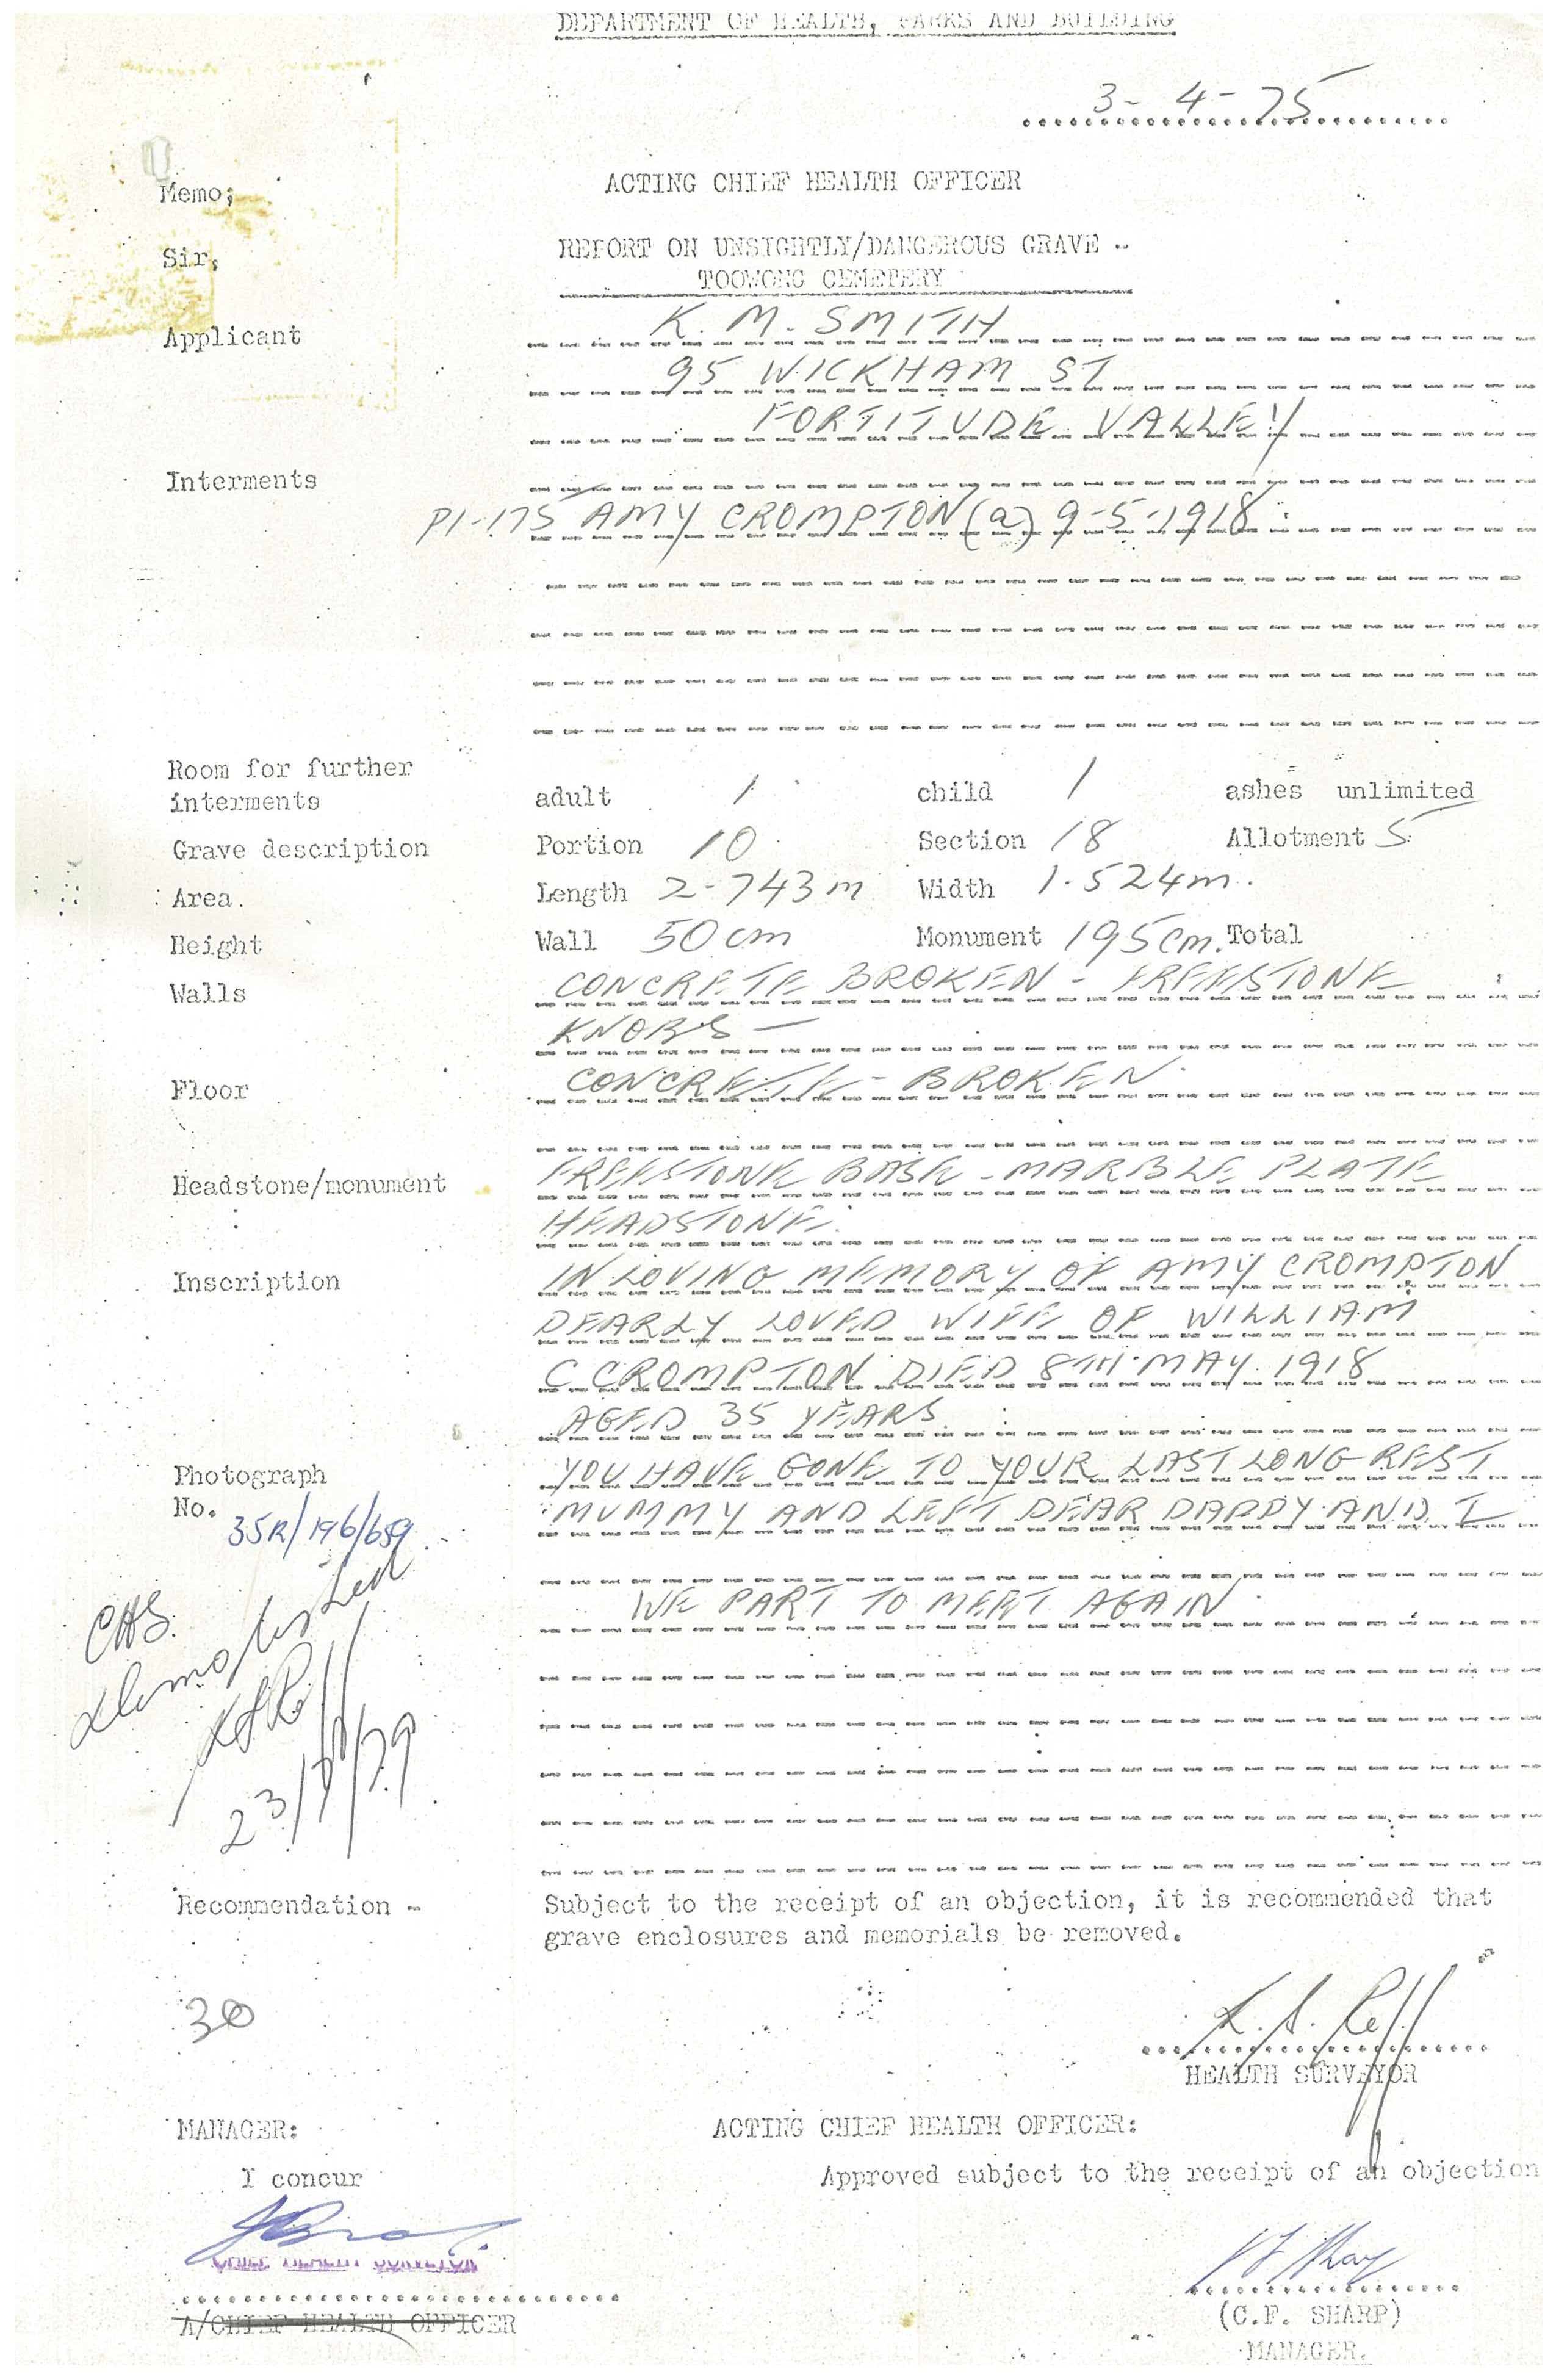 DEPARTMENT OF HEALTH, PARKS AND BUILDING
3-4-75
Memo; ACTING CHIEF HEALTH OFFICER
Sir, REPORT ON UNSIGHTLY/DANGEROUS GRAVE -
TOOWONG CEMETERY
Applicant K. M. SMITH
95 WICKHAM ST
FORTITUDE VALLEY
Interments
P1-175 AMY CROMPTON (a) 9-5-1918
Room for further
interments adult 1 child 1 ashes unlimited
Grave description Portion 10 Section 18 Allotment 5
Area. Length 2-743m Width 1.524m.
Height Wall 50cm Monument 195cm. Total
Walls CONCRETE BROKEN - FREESTONE
KNOBS -
Floor CONCRETE - BROKEN.
Headstone/monument FREESTONE BASE - MARBLE PLATE
HEADSTONE.
Inscription IN LOVING MEMORY OF AMY CROMPTON
DEARLY LOVED WIFE OF WILLIAM
C CROMPTON DIED 8TH MAY 1918
AGED 35 YEARS
Photograph YOU HAVE GONE TO YOUR LAST LONG REST
No. 35R/196/659 MUMMY AND LEFT DEAR DADDY AND I
WE PART TO MEET AGAIN
CHS.
demolished
23/11/79
Recommendation - Subject to the receipt of an objection, it is recommended that
grave enclosures and memorials be removed.
30
HEALTH SURVEYOR
MANAGER: ACTING CHIEF HEALTH OFFICER:
I concur Approved subject to the receipt of an objection
CHIEF HEALTH SURVEYOR
A/CHIEF HEALTH OFFICER (C.F. SHARP)
MANAGER.